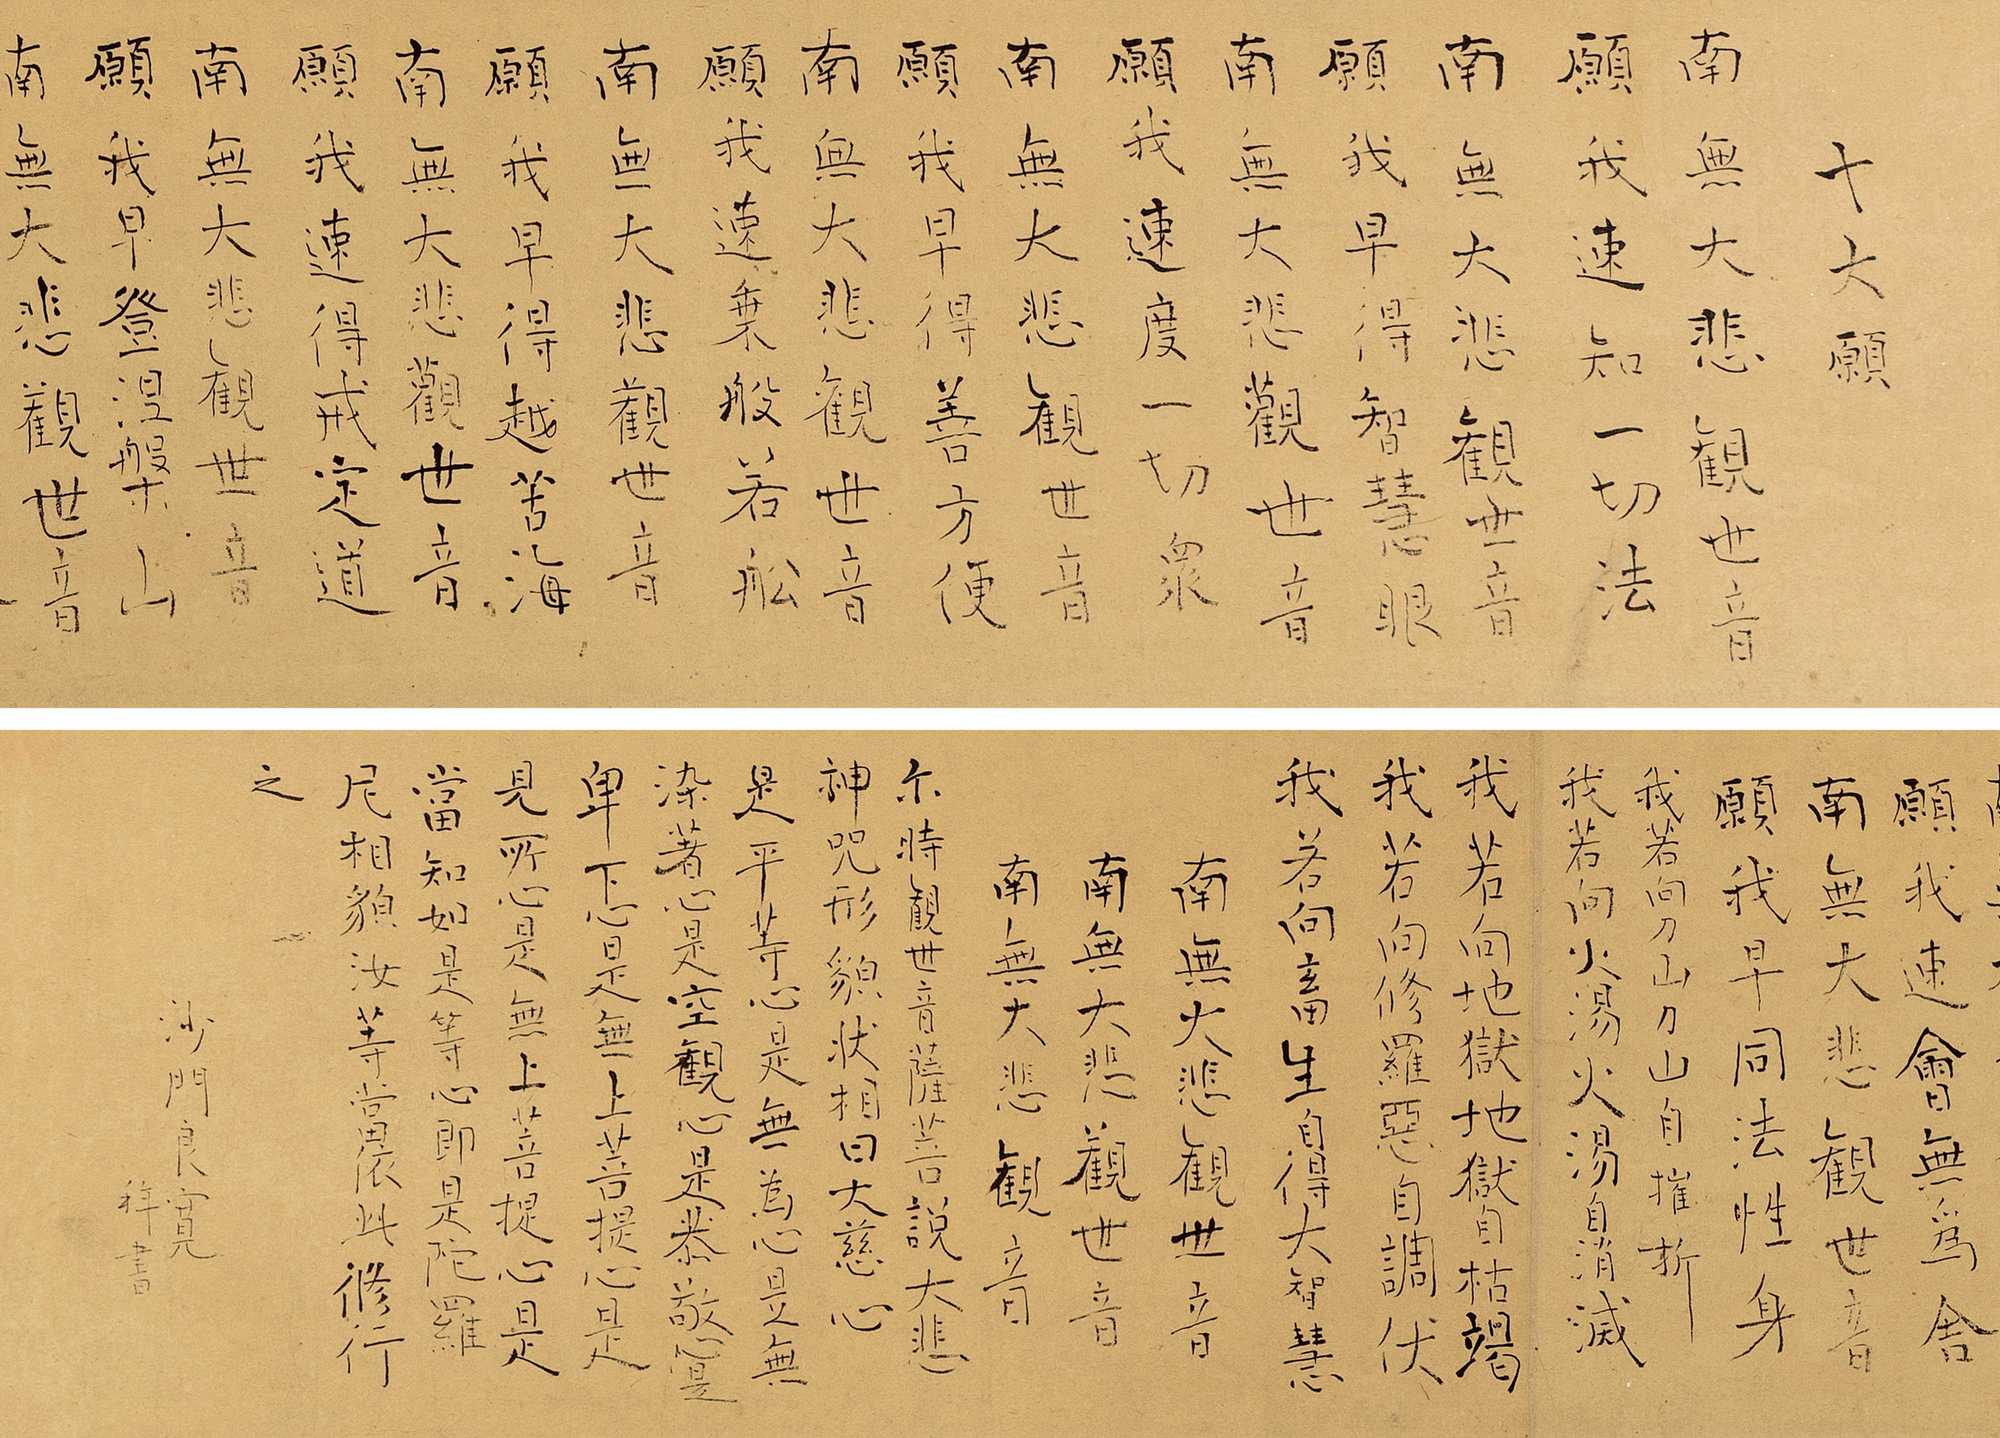 十大願
南無大悲觀世音
願我速知一切法
南無大悲觀世音
願我早得智慧眼
南無大悲觀世音
願我速度一切衆
南無大悲觀世音
願我早得善方便
南無大悲觀世音
願我速乗般若舩
南無大悲觀世音
願我早得越苦海
南無大悲觀世音
願我速得戒定道
南無大悲觀世音
願我早登涅槃山
南無大悲觀世音
願我速會無為舍
南無大悲觀世音
願我早同法性身
我若向刀山刀山自摧折
我若向火湯火湯自消滅
我若向地獄地獄自枯竭
我若向修羅惡自調伏
我若向畜生自得大智慧
南無大悲觀世音
南無大悲觀世音
南無大悲觀音
尒時觀世音薩菩說大悲
神咒形貌状相曰大慈心
是平等心是無為心是無
染著心是空觀心是恭敬心是
卑下心是無上菩提心是
見所心是無上菩提心是
當知如是等心即是陀羅
尼相貌汝等當依此修行
之
沙門良寛
拜書